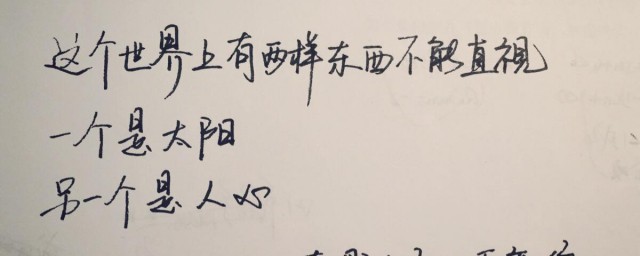 这个世界上有两样东西不能直视
一个是太阳
另一个是人心